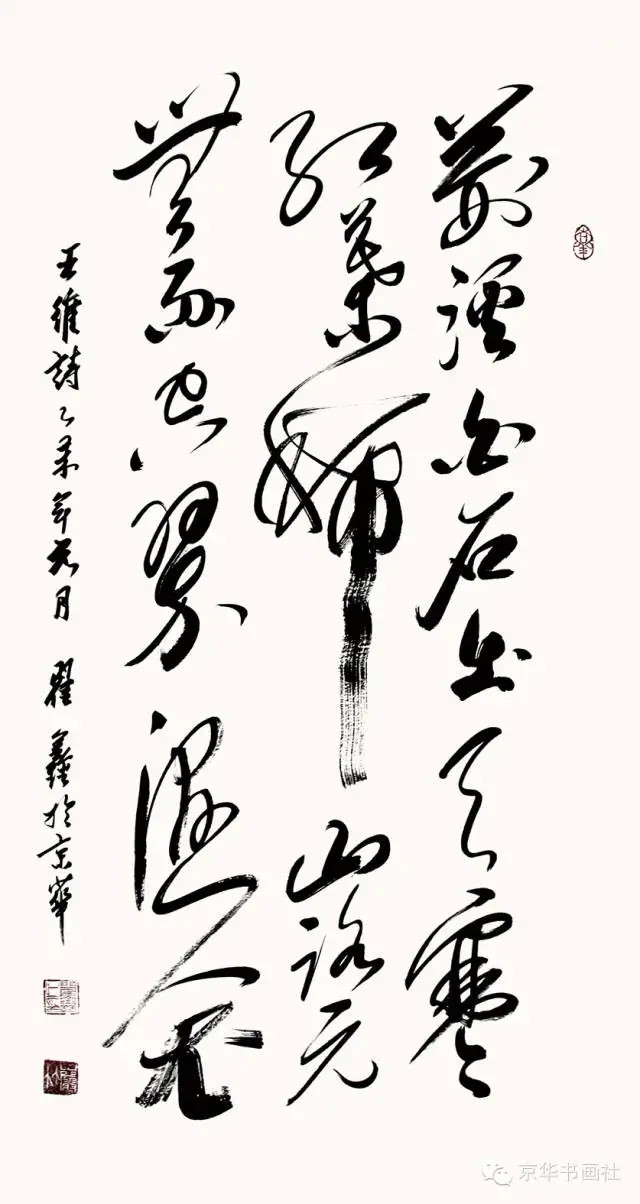 荊溪白石出天寒
紅葉稀山路元
無雨空翠濕人衣
王維詩乙未年元月 翟於京華
京华书画社